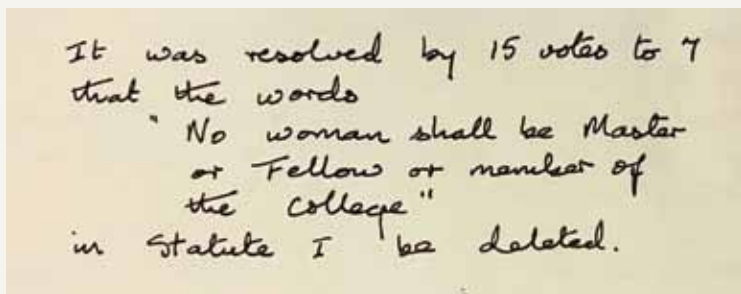 It was resolved by 15 votes to 7
that the words
"No woman shall be Master
or Fellow or member of
the College"
in Statute I be deleted.